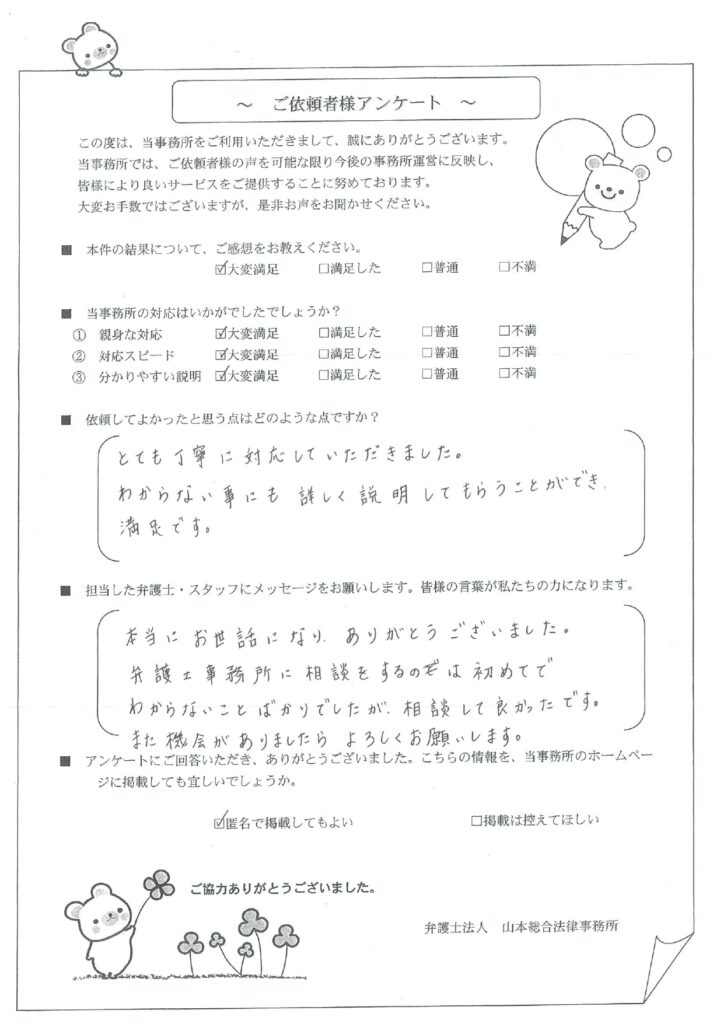 ～ ご依頼者様アンケート ～
この度は、当事務所をご利用いただきまして、誠にありがとうございます。
当事務所では、ご依頼者様の声を可能な限り今後の事務所運営に反映し、
皆様により良いサービスをご提供することに努めております。
大変お手数ではございますが、是非お声をお聞かせください。
■ 本件の結果について、ご感想をお教えください。
☑大変満足 □満足した □普通 □不満
■ 当事務所の対応はいかがでしたでしょうか？
① 親身な対応 ☑大変満足 □満足した □普通 □不満
② 対応スピード ☑大変満足 □満足した □普通 □不満
③ 分かりやすい説明 ☑大変満足 □満足した □普通 □不満
■ 依頼してよかったと思う点はどのような点ですか？
とても丁寧に対応していただきました。
わからない事にも詳しく説明してもらうことができ、
満足です。
■ 担当した弁護士・スタッフにメッセージをお願いします。皆様の言葉が私たちの力になります。
本当にお世話になり、ありがとうございました。
弁護士事務所に相談をするのは初めてで
わからないことばかりでしたが、相談して良かったです。
また機会がありましたらよろしくお願いします。
■ アンケートにご回答いただき、ありがとうございました。こちらの情報を、当事務所のホームペー
ジに掲載しても宜しいでしょうか。
☑匿名で掲載してもよい □掲載は控えてほしい
ご協力ありがとうございました。
弁護士法人 山本総合法律事務所